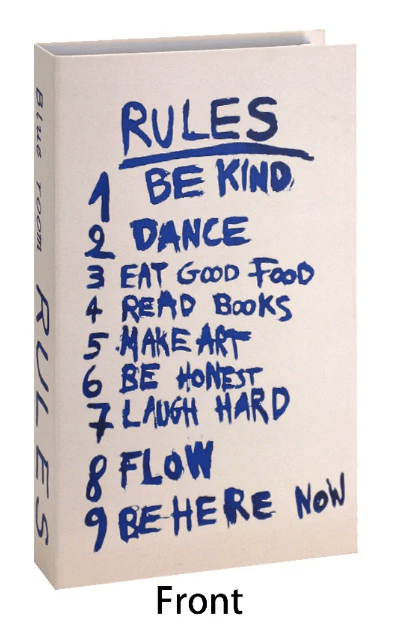 Blue room RULES
RULES
1 BE KIND
2 DANCE
3 EAT GOOD FOOD
4 READ BOOKS
5 MAKE ART
6 BE HONEST
7 LAUGH HARD
8 FLOW
9 BE HERE NOW
Front